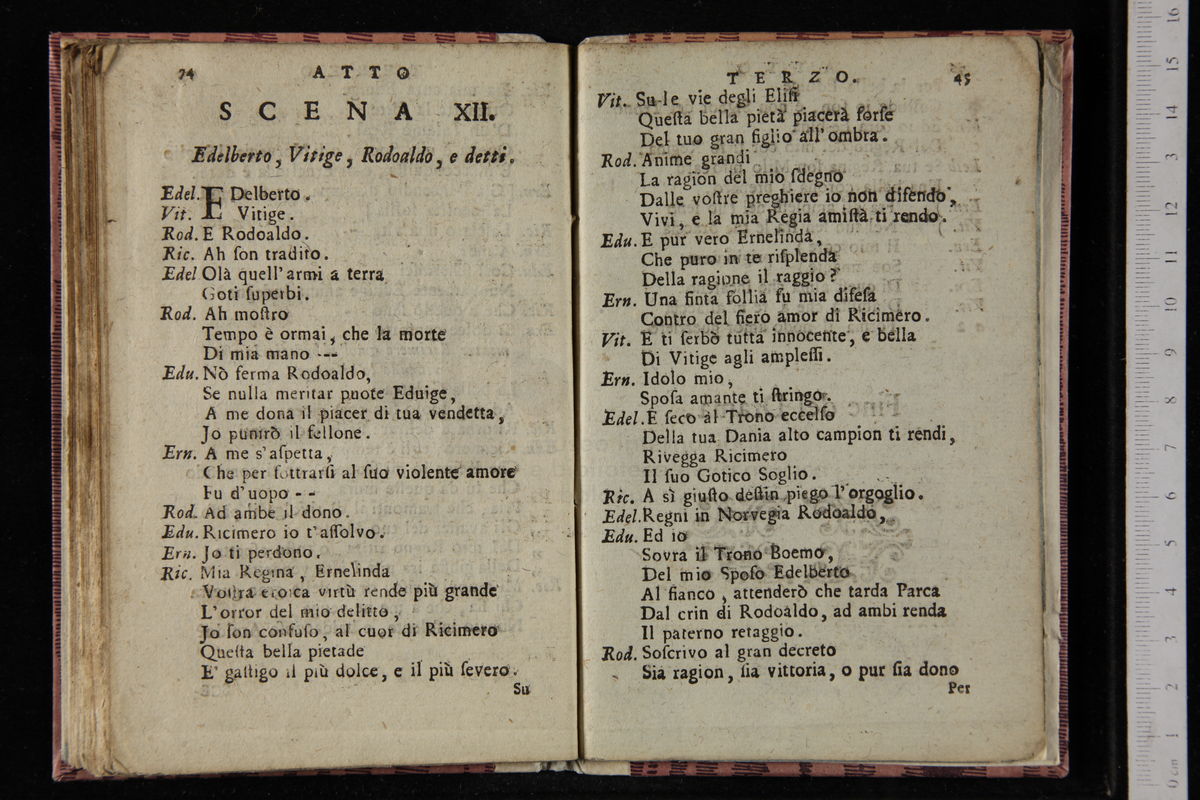 74 ATTO
SCENA XII.
Edelberto, Vitige, Rodoaldo, e detti.
Edel. EDelberto.
Vit. Vitige.
Rod. E Rodoaldo.
Ric. Ah ſon tradito.
Edel Olà quell'armi a terra
Goti ſuperbi.
Rod. Ah moſtro
Tempo è ormai, che la morte
Di mia mano ---
Edu. Nò ferma Rodoaldo,
Se nulla meritar puote Eduige,
A me dona il piacer di tua vendetta,
Jo punirò il fellone.
Ern. A me s'aſpetta,
Che per ſottrarſi al ſuo violente amore
Fu d'uopo - -
Rod. Ad ambe il dono.
Edu. Ricimero io t'aſſolvo.
Ern. Jo ti perdono.
Ric. Mia Regina, Ernelinda
Voſtra eroica virtù rende più grande
L'orror del mio delitto,
Jo ſon confuſo, al cuor di Ricimero
Queſta bella pietade
E' gaſtigo il più dolce, e il più ſevero.
Su
TERZO. 45
Vit. Su le vie degli Eliſi
Queſta bella pietà piacerà forſe
Del tuo gran figlio all'ombra.
Rod. Anime grandi
La ragion del mio ſdegno
Dalle voſtre preghiere io non difendo,
Vivi, e la mia Regia amiſtà ti rendo.
Edu. E pur vero Ernelinda,
Che puro in te riſplenda
Della ragione il raggio?
Ern. Una finta follia fu mia difeſa
Contro del fiero amor di Ricimero.
Vit. E ti ſerbò tutta innocente, e bella
Di Vitige agli ampleſſi.
Ern. Idolo mio,
Spoſa amante ti ſtringo.
Edel. E ſeco al Trono eccelſo
Della tua Dania alto campion ti rendi,
Rivegga Ricimero
Il ſuo Gotico Soglio.
Ric. A sì giuſto deſtin piego l'orgoglio.
Edel. Regni in Norvegia Rodoaldo,
Edu. Ed io
Sovra il Trono Boemo,
Del mio Spoſo Edelberto
Al fianco, attenderò che tarda Parca
Dal crin di Rodoaldo, ad ambi renda
Il paterno retaggio.
Rod. Soſcrivo al gran decreto
Sia ragion, ſia vittoria, o pur ſia dono
Per
16
15
14
13
12
11
10
9
8
7
6
5
4
3
2
1
0 cm